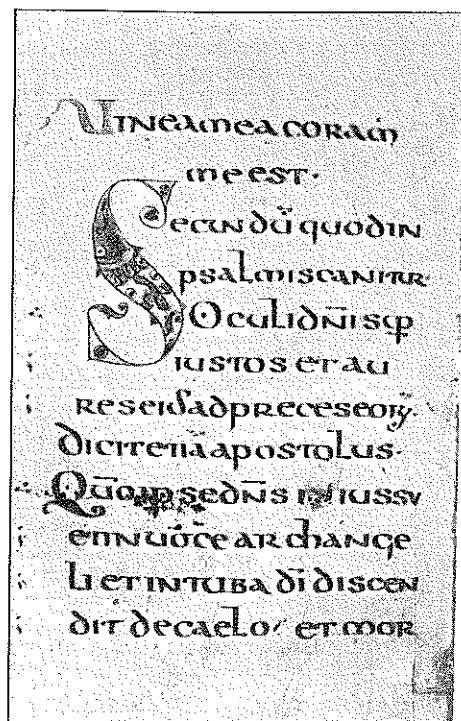 Uinea mea coram
me est·
Secundū quod in
psalmis canitur·
Oculi dn̄i sup̄
iustos et au
res eius ad preces eorꝝ·
dicit etiā apostolus·
Qūo ipse dn̄s in iussu
et in uoce archange
li et in tuba dī discen
dit de caelo· et mor